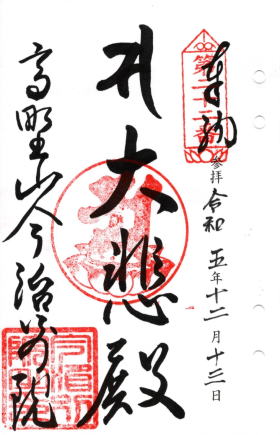 奉納
参拝 令和五年十二月十三日
大悲殿
高野山今治別院